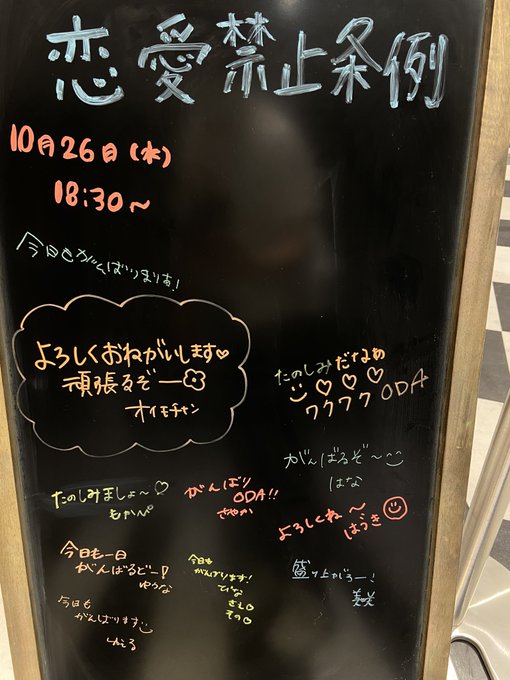 恋愛禁止条例
10月26日(水)
18:30~
今日もがんばりまりあ!
よろしくおねがいします♡
頑張るぞー
オイモチャン
たのしみだなぁ
♡♡♡
ワクワクODA
がんばるぞ~
はな
たのしみましょ~♡
もかぺ
がんばり
ODA!!
さやか
よろしくね~
はづき
今日も一日
がんばるどー!
ゆうな
今日も
がんばります!
盛り上がろー!
美咲
今日も
がんばります